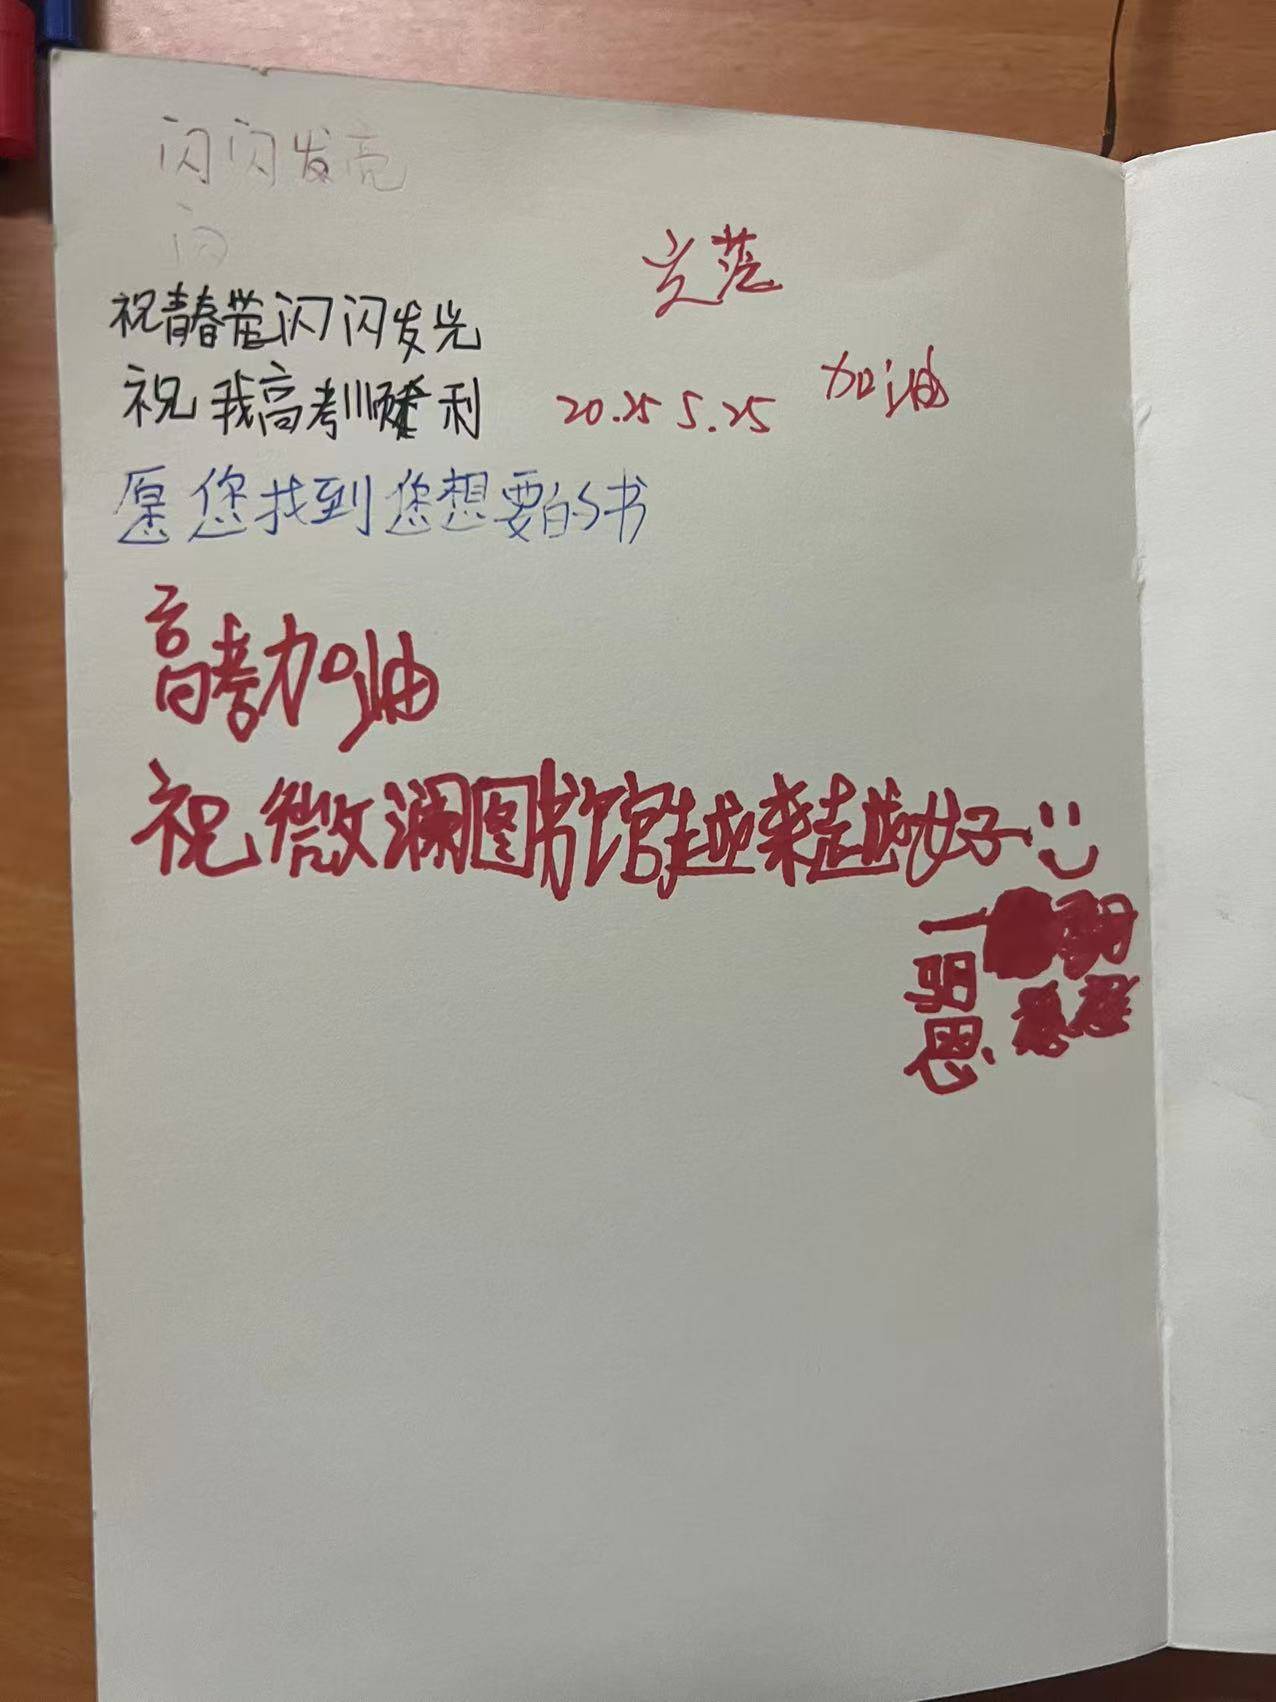 闪闪发亮
闪
祝青春常闪闪发光
祝我高考顺利
20.25 5.25
加油
愿您找到您想要的书
高考加油
祝微澜图书馆越来越好
一明思